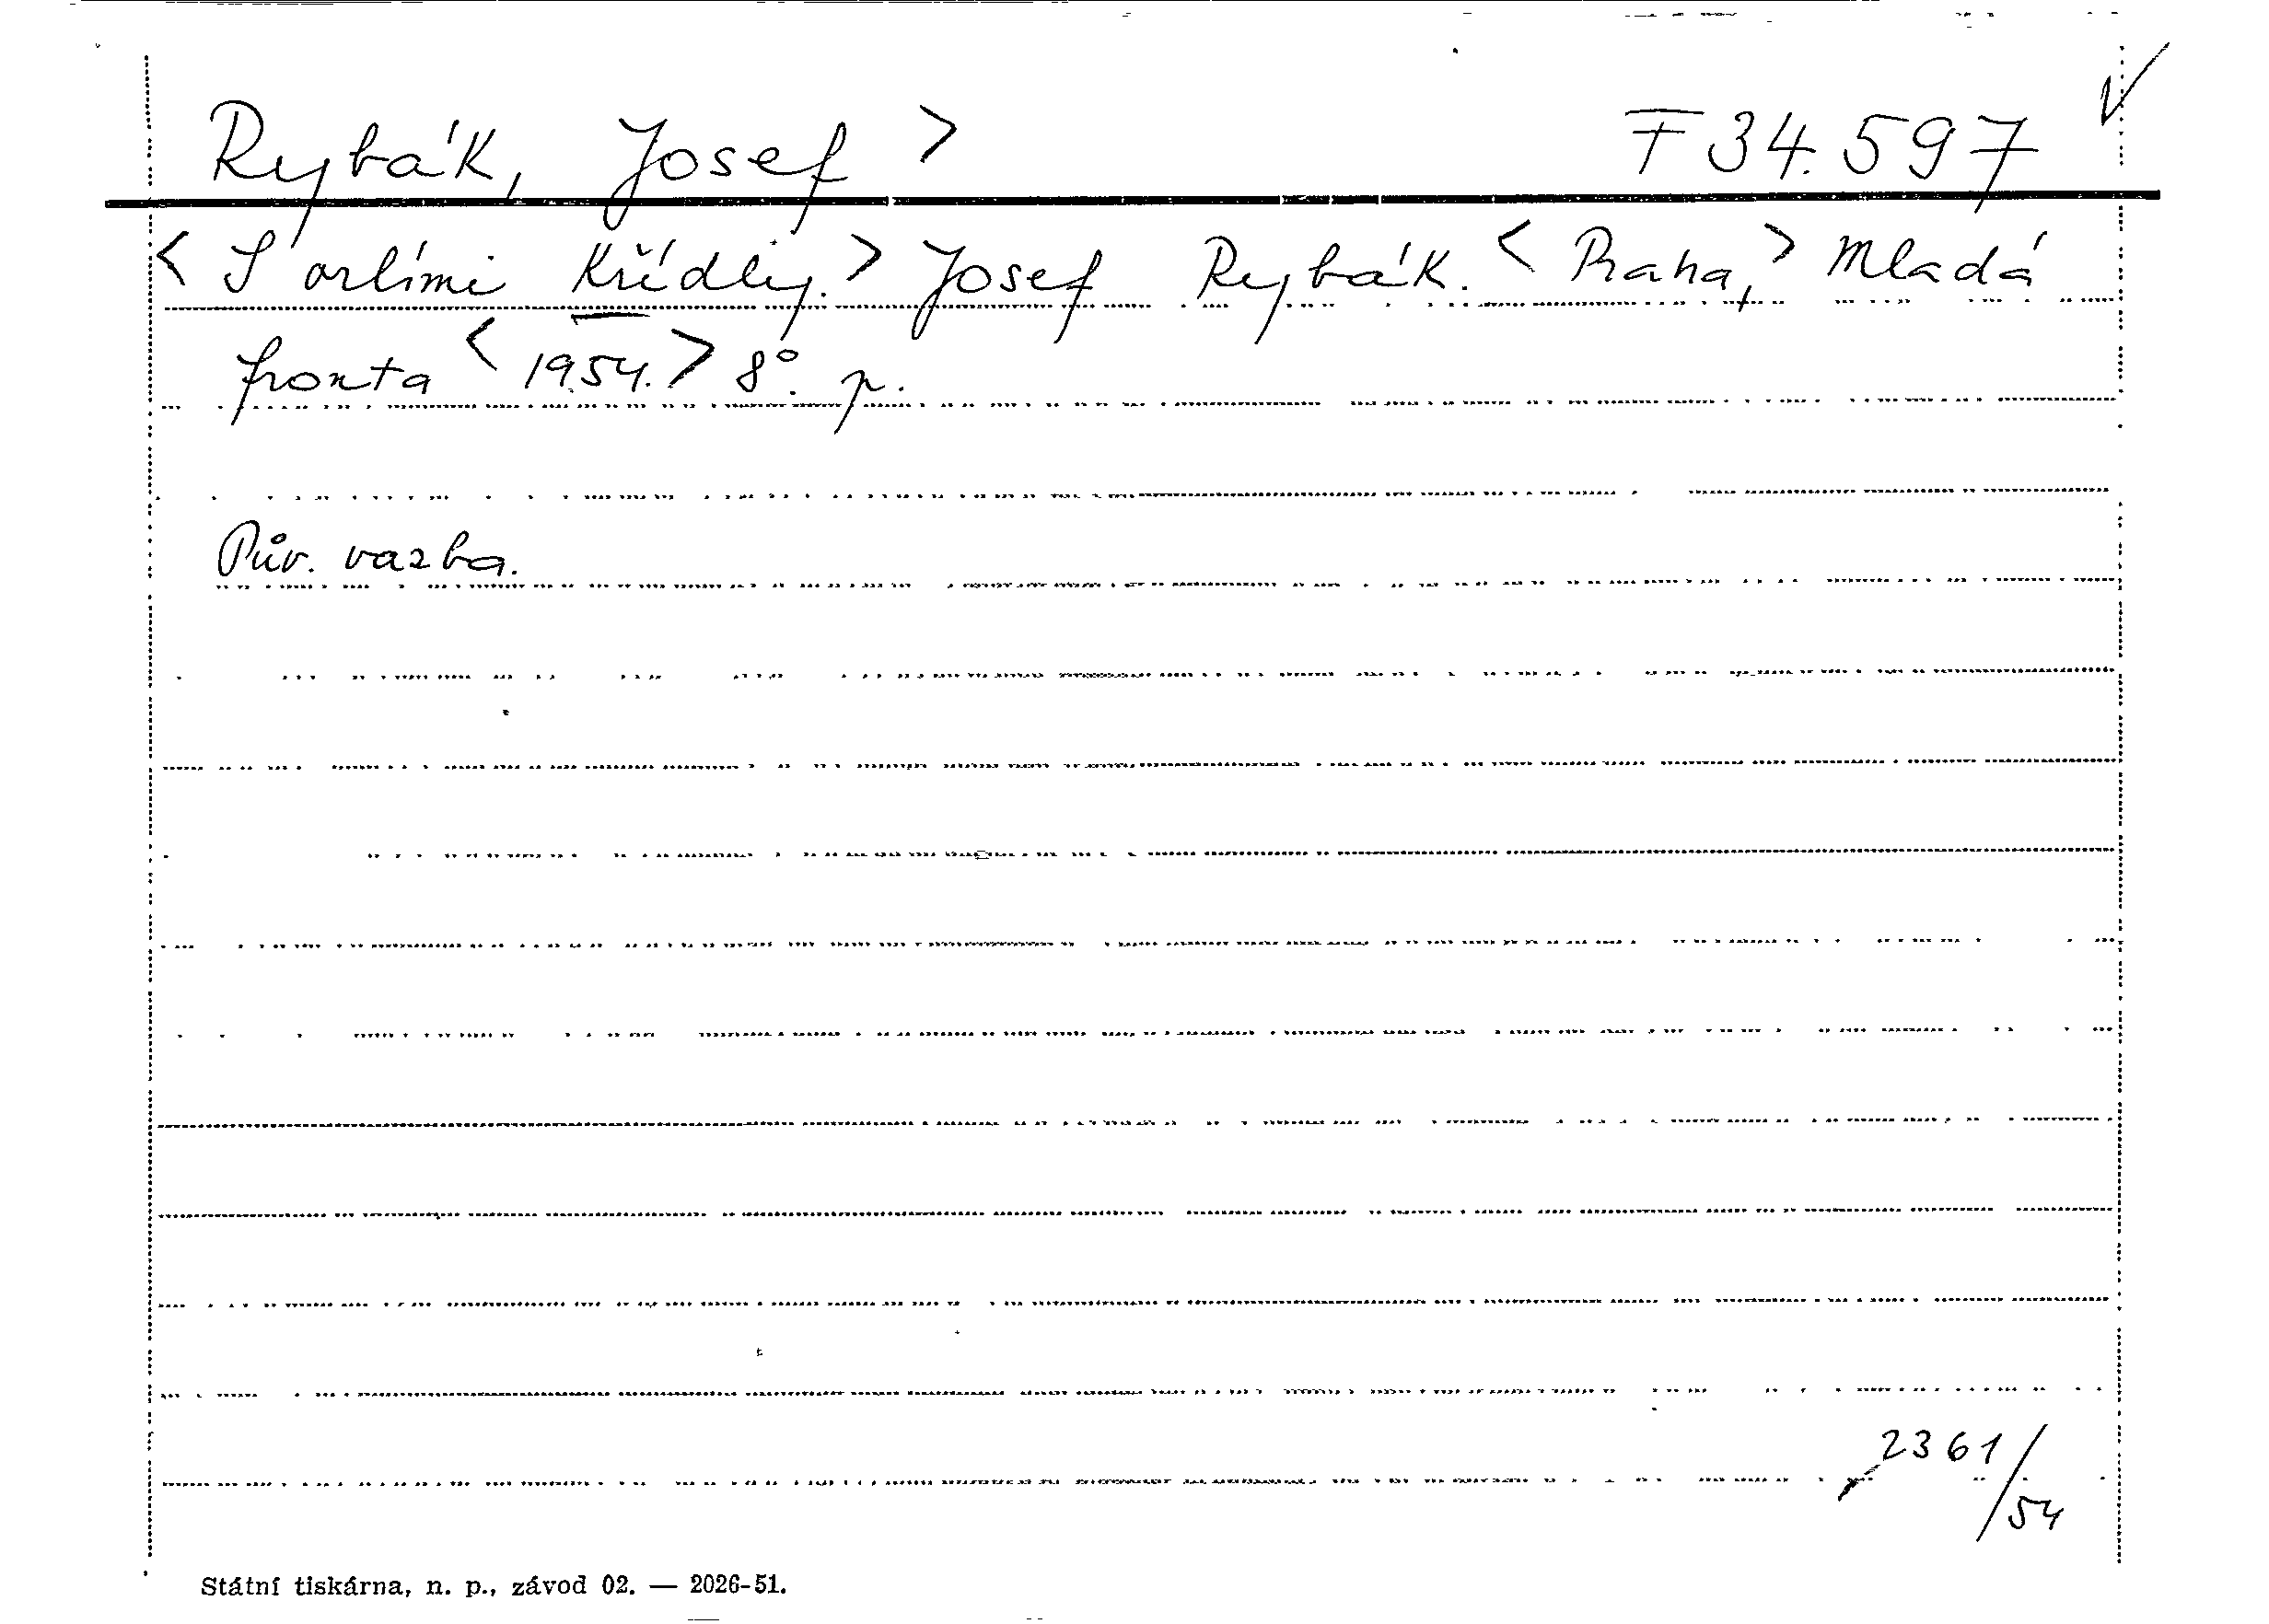 Rybák, Josef > F 34.597 ✓
< S orlími křídly. > Josef Rybák. < Praha, > Mladá
fronta < 1954. > 8°. p.
Pův. vazba.
2361/54
Státní tiskárna, n. p., závod 02. — 2026-51.